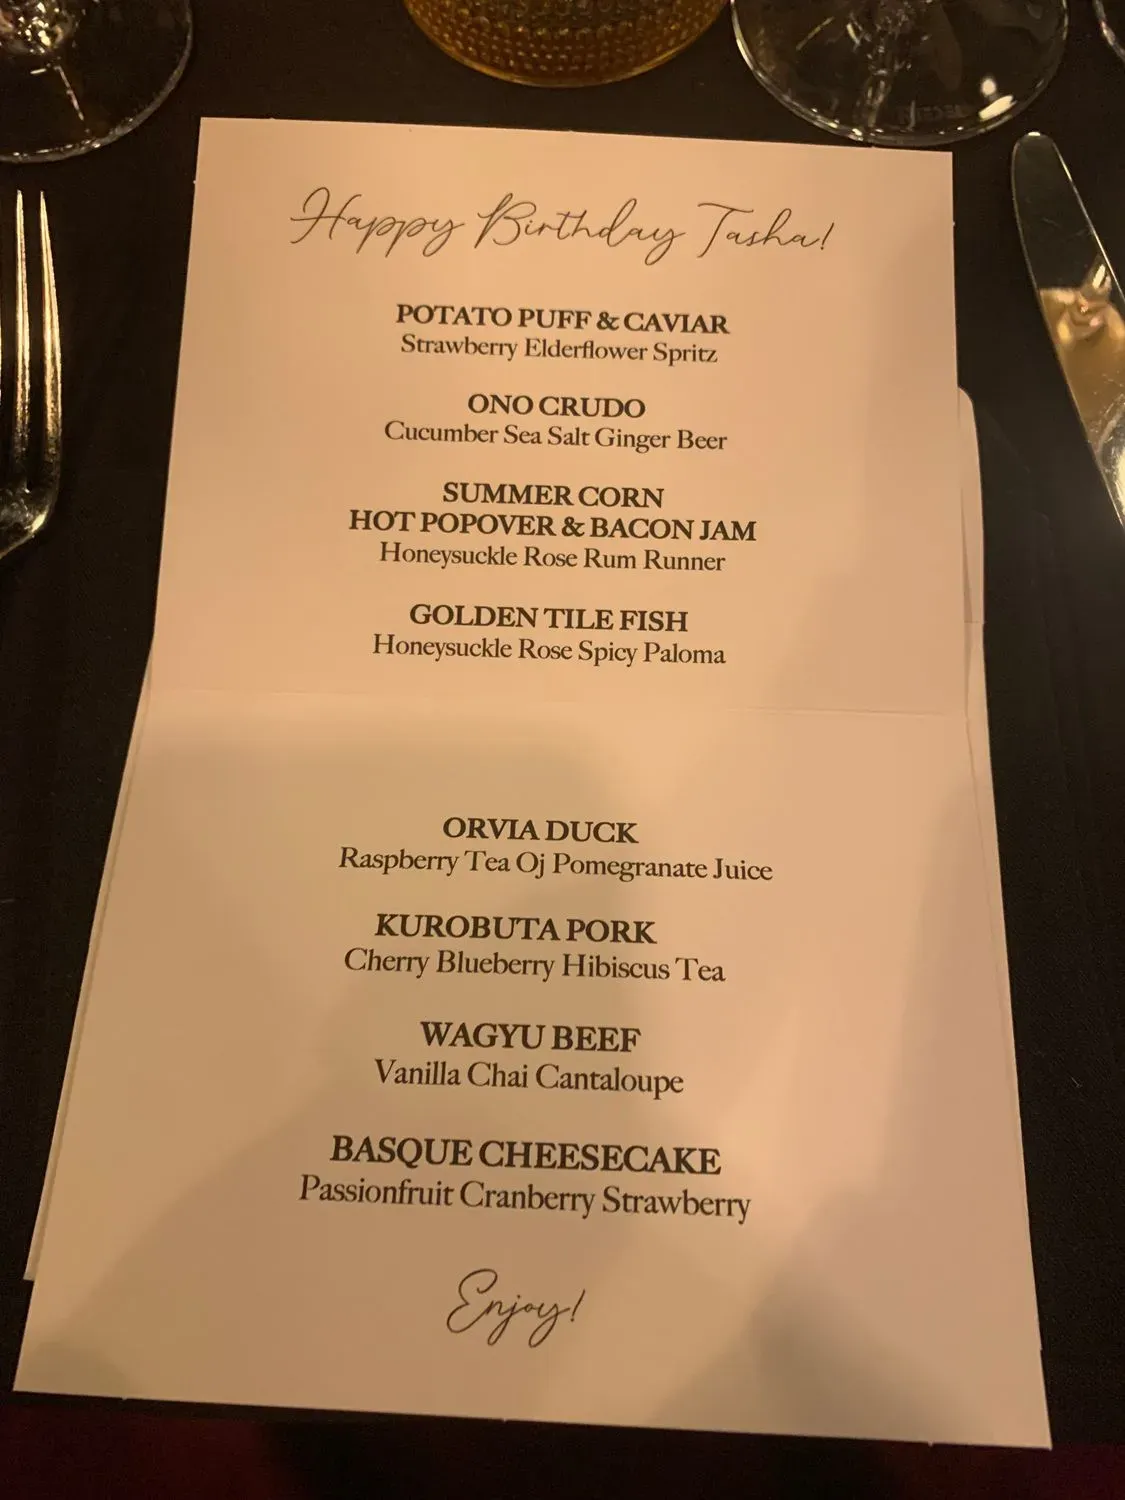 Happy Birthday Tasha!
POTATO PUFF & CAVIAR
Strawberry Elderflower Spritz
ONO CRUDO
Cucumber Sea Salt Ginger Beer
SUMMER CORN
HOT POPOVER & BACON JAM
Honeysuckle Rose Rum Runner
GOLDEN TILE FISH
Honeysuckle Rose Spicy Paloma
ORVIA DUCK
Raspberry Tea Oj Pomegranate Juice
KUROBUTA PORK
Cherry Blueberry Hibiscus Tea
WAGYU BEEF
Vanilla Chai Cantaloupe
BASQUE CHEESECAKE
Passionfruit Cranberry Strawberry
Enjoy!